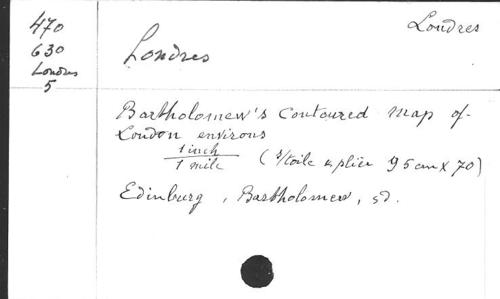 Londres
470
630
Londres
5
Londres
Bartholomew's Contoured map of
London environs
1 inch
1 mile
(s/toile & pliée 95cm x 70)
Edinburg, Bartholomew, sd.